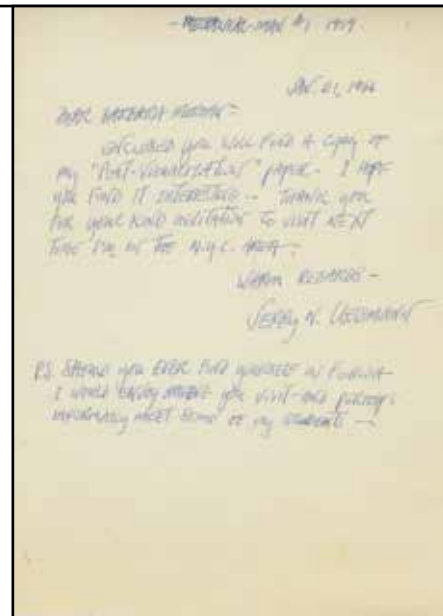 1959
JAN. 01, 1966
DEAR BARBARA MORGAN -
ENCLOSED you WILL FIND A COPY OF
my "POST-VISUALIZATION" PAPER - I HOPE
you FIND IT INTERESTING - THANK you
FOR YOUR KIND INVITATION TO VISIT NEXT
TIME I'M IN THE N.Y.C. AREA -
WARM REGARDS -
JERRY N. UELSMANN
P.S. SHOULD you EVER FIND YOURSELF IN FLORIDA
I WOULD ENJOY you VISIT - AND PERHAPS
INFORMALLY MEET SOME OF my STUDENTS -